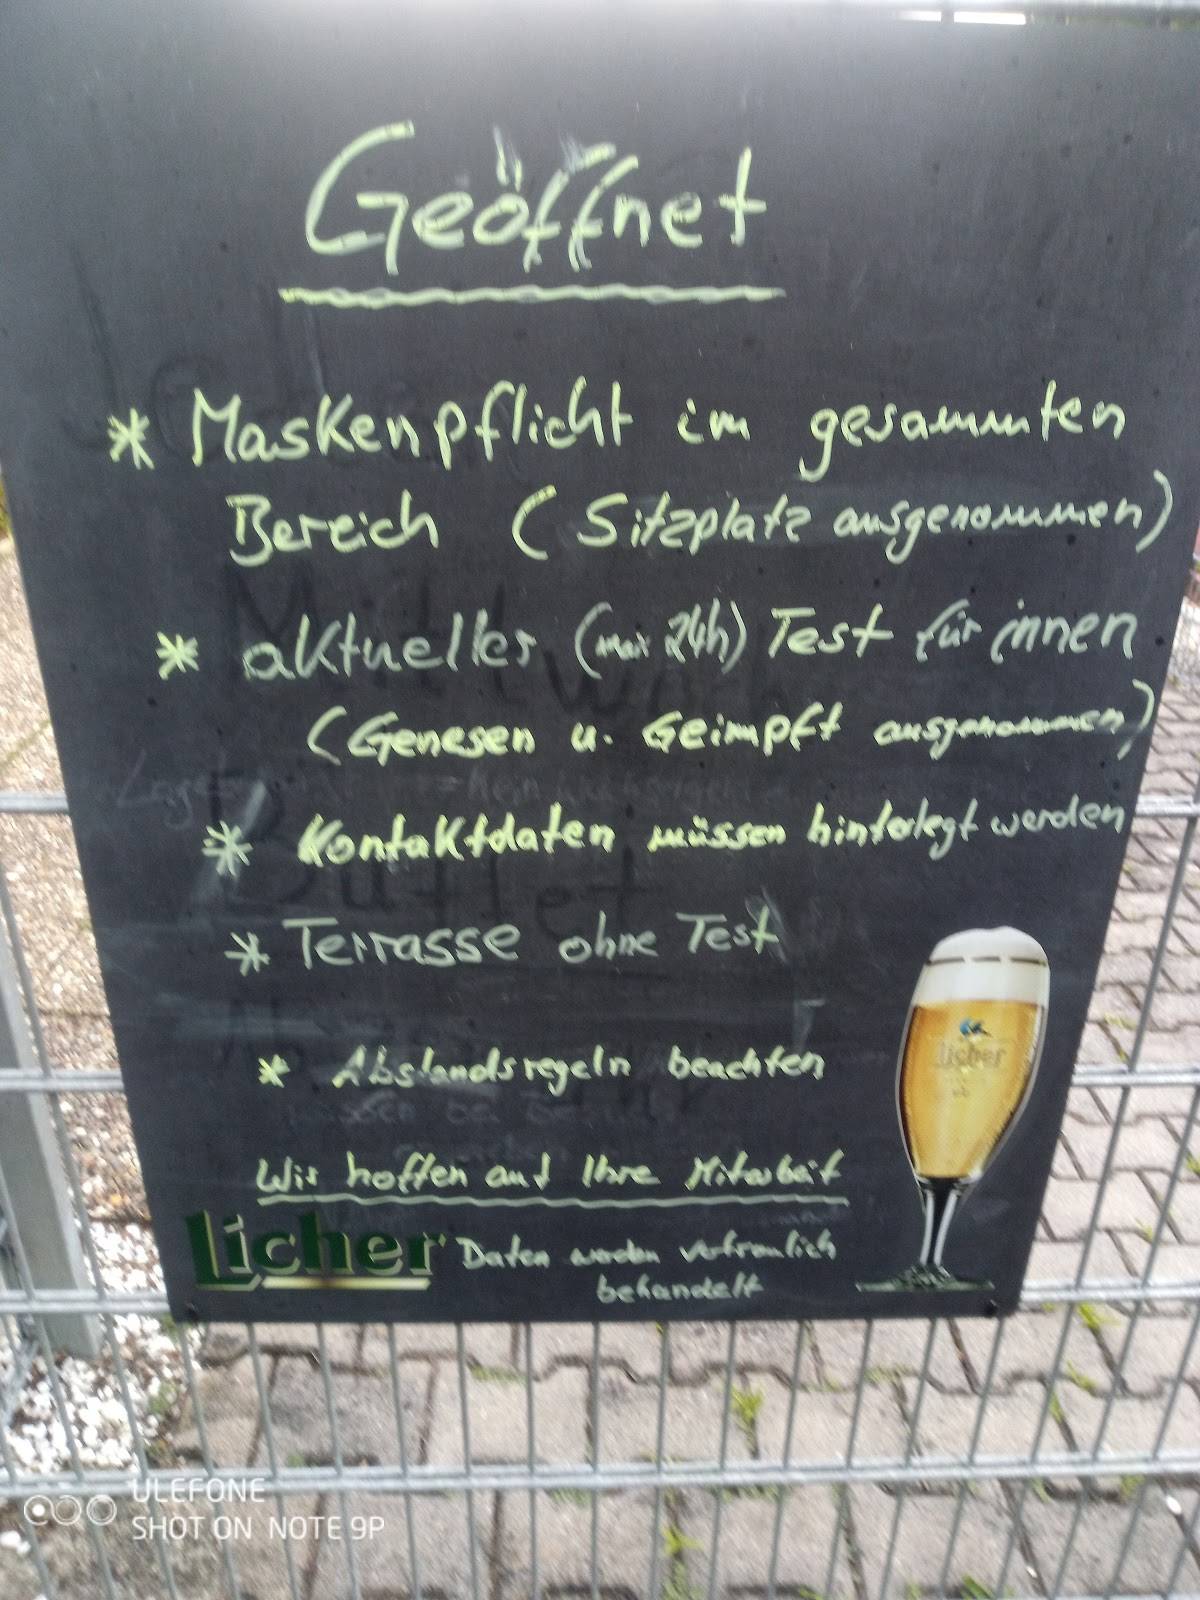 Geöffnet
* Maskenpflicht im gesammten
Bereich (Sitzplatz ausgenommen)
* aktueller (max 24h) Test für innen
(Genesen u. Geimpft ausgenommen)
* Kontaktdaten müssen hinterlegt werden
* Terrasse ohne Test
* Abstandsregeln beachten
Wir hoffen auf Ihre Mitarbeit
Licher Daten werden vertraulich
behandelt
Licher
ULEFONE
SHOT ON NOTE 9P